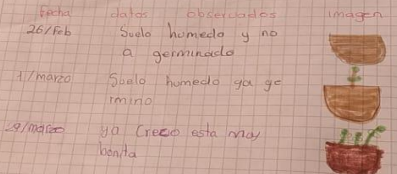 fecha datos observados imagen
26/Feb Suelo humedo y no
a germinado
1/marzo Suelo humedo ya ge
rmino
29/marzo ya Crecio esta muy
bonita